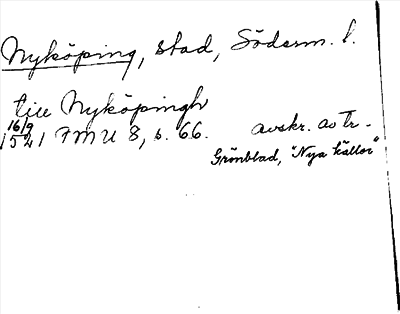 Nyköping, stad, Söderm. l.
till Nyköpingh
16/9
1521 FMU 8, s. 66. avskr. av Tr.
Grönblad, "Nya källor"